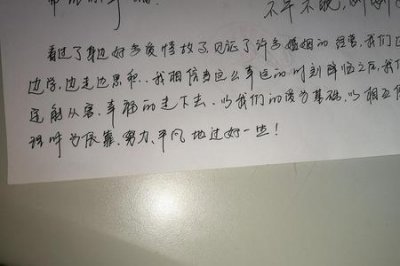 不早不晚，刚刚
看过了身边好多爱情故事，见证了许多婚姻的经营，我们
边学，边走边思和..我相信当这么幸运的时刻降临之后，我们
还能从容、幸福的走下去。以我们的爱为基础，以相互
为依靠，努力、平凡地过好一生！